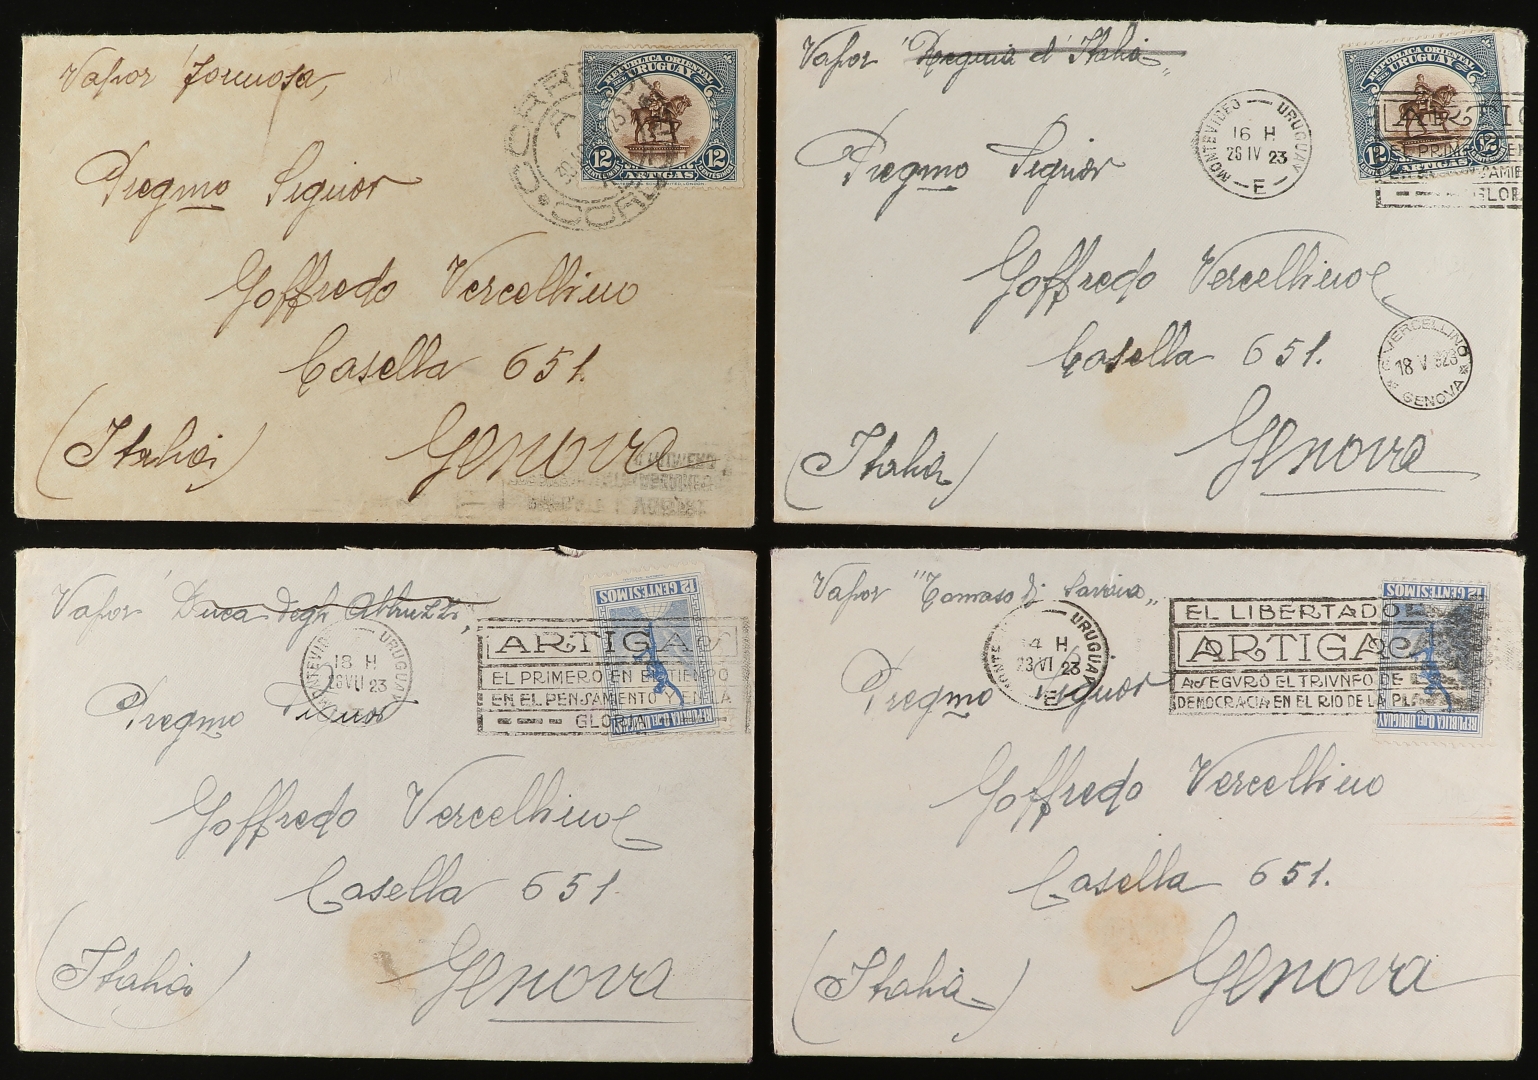 Vapor Formosa,
REPUBLICA ORIENTAL
DEL URUGUAY
12 12
ARTIGAS
Pregmo Signor
Goffredo Vercellino
Casella 651.
(Italia) Genova
Vapor "Regina d'Italia"
REPUBLICA ORIENTAL
DEL URUGUAY
12 12
ARTIGAS
MONTEVIDEO URUGUAY
16 H
26 IV 23
E
Pregmo Signor
Goffredo Vercellino
Casella 651.
G. VERCELLINO
18 V 923
GENOVA
(Italia) Genova
Vapor Duca degli Abruzzi,
12 CENTESIMOS
REPUBLICA O. DEL URUGUAY
MONTEVIDEO URUGUAY
18 H
28 VII 23
ARTIGAS
EL PRIMERO EN EL TIEMPO
EN EL PENSAMIENTO Y EN LA
GLORIA
Pregmo Signor
Goffredo Vercellino
Casella 651.
(Italia) Genova
Vapor "Tomaso di Savoia"
12 CENTESIMOS
REPUBLICA O. DEL URUGUAY
URUGUAY
4 H
23 VI 23
E
EL LIBERTADO
ARTIGAS
ASEGVRÓ EL TRIVNFO DE
DEMOCRACIA EN EL RIO DE LA PL
Pregmo Signor
Goffredo Vercellino
Casella 651.
(Italia) Genova